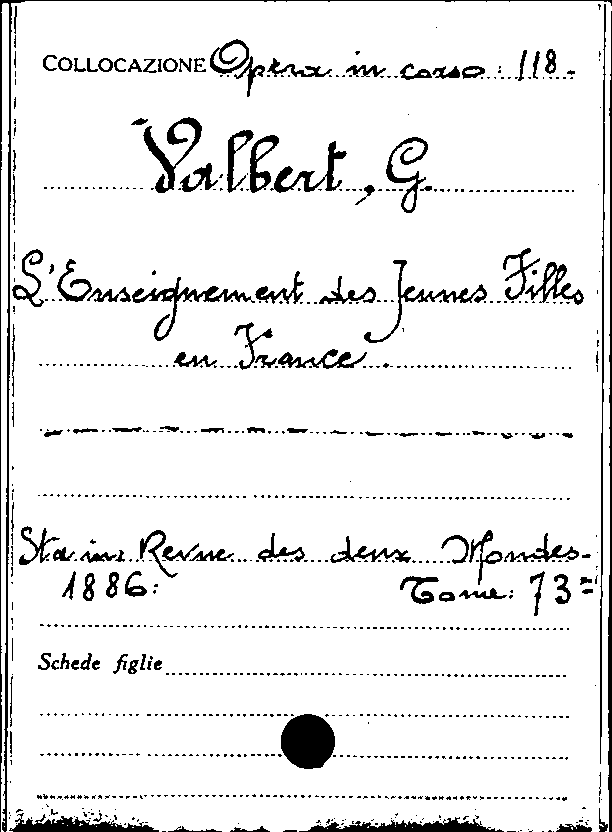 COLLOCAZIONE Opera in corso: 118-
Valbert, G.
L'Enseignement des Jeunes Filles
en France.
Sta in: Revue des deux Mondes-
1886: Tome: 73=
Schede figlie